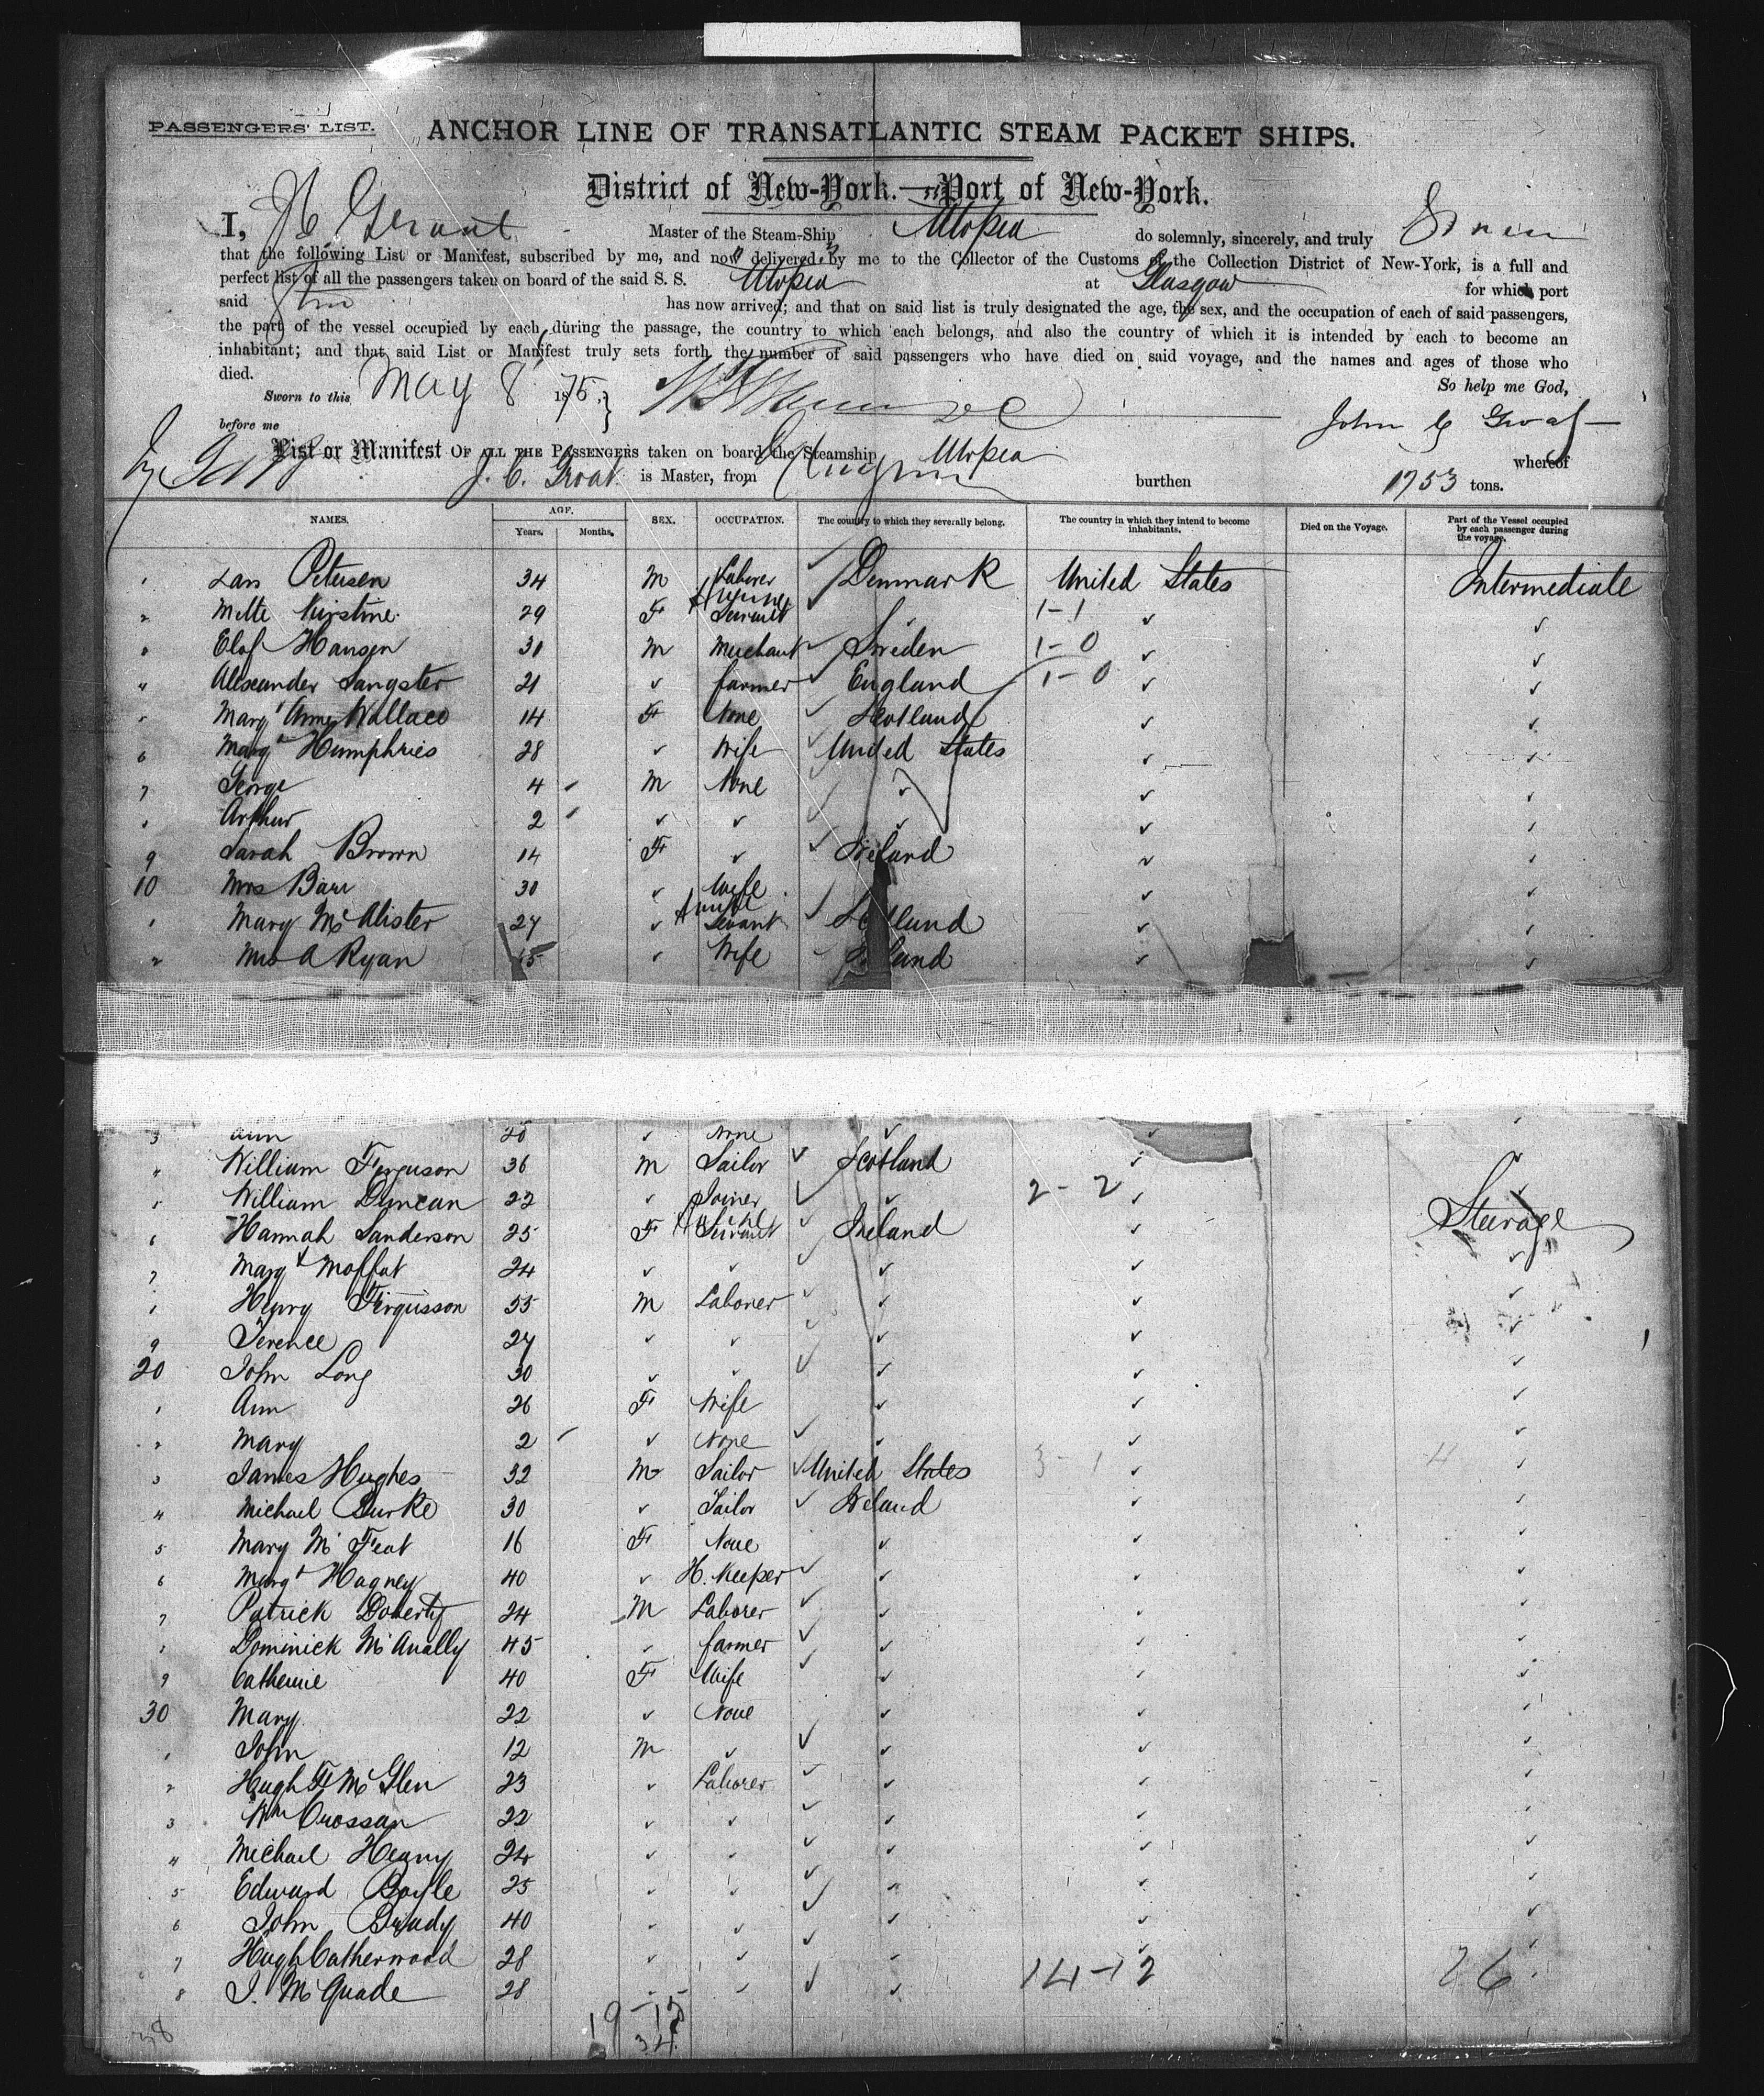 PASSENGERS' LIST. ANCHOR LINE OF TRANSATLANTIC STEAM PACKET SHIPS.
District of New-York.—Port of New-York.
I, Master of the Steam-Ship Utopia do solemnly, sincerely, and truly
that the following List or Manifest, subscribed by me, and now delivered by me to the Collector of the Customs of the Collection District of New-York, is a full and
perfect list of all the passengers taken on board of the said S. S. Utopia at Glasgow for which port
said has now arrived; and that on said list is truly designated the age, the sex, and the occupation of each of said passengers,
the part of the vessel occupied by each during the passage, the country to which each belongs, and also the country of which it is intended by each to become an
inhabitant; and that said List or Manifest truly sets forth the number of said passengers who have died on said voyage, and the names and ages of those who
died. So help me God,
Sworn to this May 8 1875 }
before me
List or Manifest OF ALL THE PASSENGERS taken on board the Steamship Utopia whereof
J. C. Groat is Master, from burthen 1753 tons.
NAMES. AGE. Years. Months. SEX. OCCUPATION. The country to which they severally belong. The country in which they intend to become inhabitants. Died on the Voyage. Part of the Vessel occupied by each passenger during the voyage.
1 Lars Petersen 34 M Laborer ✓ Denmark United States Intermediate
2 Mette Kirstine 29 F Servant ✓ 1-1 ✓ ✓
Elof Hansen M Merchant ✓ Sweden 1-0 ✓ ✓
4 Alexander Sangster 21 ✓ farmer ✓ England 1-0 ✓ ✓
5 Margt Anne Wallace 14 F None ✓ Scotland ✓ ✓
6 Margt Humphries 28 ✓ Wife ✓ United States ✓ ✓
7 George 4 M None ✓ ✓ ✓ ✓
Arthur 2 ✓ ✓ ✓ ✓ ✓ ✓
9 Sarah Brown 14 F ✓ ✓ Ireland ✓ ✓
10 Mrs Barr 30 ✓ Wife ✓ ✓
1 Mary McAlister 27 ✓ Servant ✓ Scotland ✓ ✓
2 Mrs A Ryan ✓ Wife ✓ ✓
3 Ann ✓ None ✓ ✓ ✓
4 William Ferguson 36 M Sailor ✓ Scotland ✓ ✓
5 William Duncan 22 ✓ Joiner ✓ ✓ 2-2 ✓ ✓
6 Hannah Sanderson 25 F Servant ✓ Ireland ✓ Steerage
7 Margt Moffat 24 ✓ ✓ ✓ ✓ ✓ ✓
Henry Fergusson 55 M Laborer ✓ ✓ ✓ ✓
9 Terence 27 ✓ ✓ ✓ ✓ ✓ ✓
20 John Long 30 ✓ ✓ ✓ ✓ ✓ ✓
1 Ann 26 F Wife ✓ ✓ ✓
2 Mary 2 ✓ None ✓ ✓ ✓ ✓
3 James Hughes 32 M Sailor ✓ United States 3-1 ✓ 4 ✓
4 Michael Burke 30 ✓ Tailor ✓ Ireland ✓ ✓
5 Mary 16 F None ✓ ✓ ✓
6 Margt Hagney 40 ✓ H. Keeper ✓ ✓ ✓ ✓
7 Patrick Doherty 24 M Laborer ✓ ✓ ✓ ✓
Dominick McAnally 45 ✓ farmer ✓ ✓ ✓ ✓
9 Catherine 40 F Wife ✓ ✓ ✓ ✓
30 Mary 22 ✓ None ✓ ✓ ✓
1 John 12 M ✓ ✓ ✓ ✓ ✓
2 Hugh 23 ✓ Laborer ✓ ✓ ✓ ✓
3 Wm Crossan 22 ✓ ✓ ✓ ✓ ✓ ✓
4 Michael Heany 24 ✓ ✓ ✓ ✓ ✓ ✓
5 Edward Boyle 25 ✓ ✓ ✓ ✓ ✓ ✓
6 John Brady 40 ✓ ✓ ✓ ✓ ✓ ✓
7 Hugh Catherwood 28 ✓ ✓ ✓ ✓ ✓ ✓
8 J. McQuade 28 ✓ ✓ ✓ ✓ 14-12 26
38 19-15
34